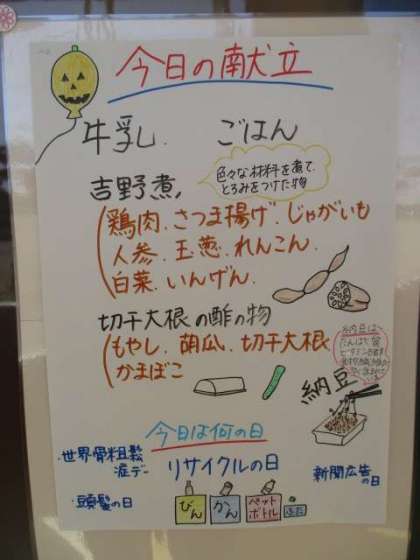 今日の献立
牛乳. ごはん
吉野煮,
色々な材料を煮て、
とろみをつけた物
鶏肉.さつま揚げ.じゃがいも
人参.玉葱.れんこん.
白菜.いんげん.
切干大根の酢の物
もやし.胡瓜.切干大根
かまぼこ
納豆は
たんぱく質
納豆
今日は何の日
・世界骨粗鬆症デー
リサイクルの日
新聞広告の日
・頭髪の日
びん
かん
ペットボトル
ふた